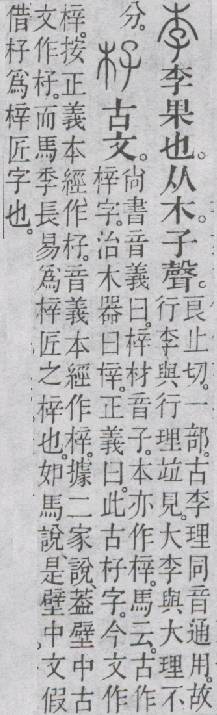 李李果也。从木。子聲。
良止切。一部。古李理同音通用。故
行李與行理竝見。大李與大理不
分。
杍古文。
尙書音義曰。梓材音子。本亦作梓。馬云。古作
梓字。治木器曰梓。正義曰。此古杍字。今文作
梓。按正義本經作杍。音義本經作梓。據二家說葢壁中古
文作杍。而馬季長易爲梓匠之梓也。如馬說。是壁中文假
借杍爲梓匠字也。